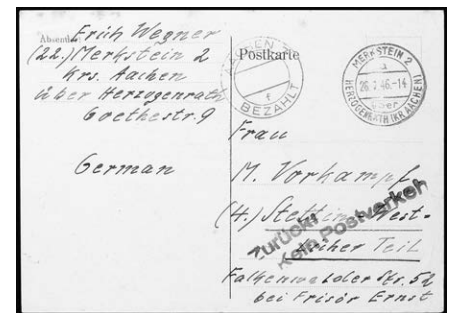 Absender
Erich Wegner
(22.) Merkstein 2
Krs. Aachen
über Herzogenrath
Goethestr. 9
German
Postkarte
AACHEN
f
BEZAHLT
MERKSTEIN 2
a
26.7.46.-14
über
HERZOGENRATH (KR AACHEN)
Frau
M. Vorkampf
(4.) Stettin - West-
Zurück!
Kein Postverkehr
Teil
Falkenwalder Str. 52
bei Frisör Ernst